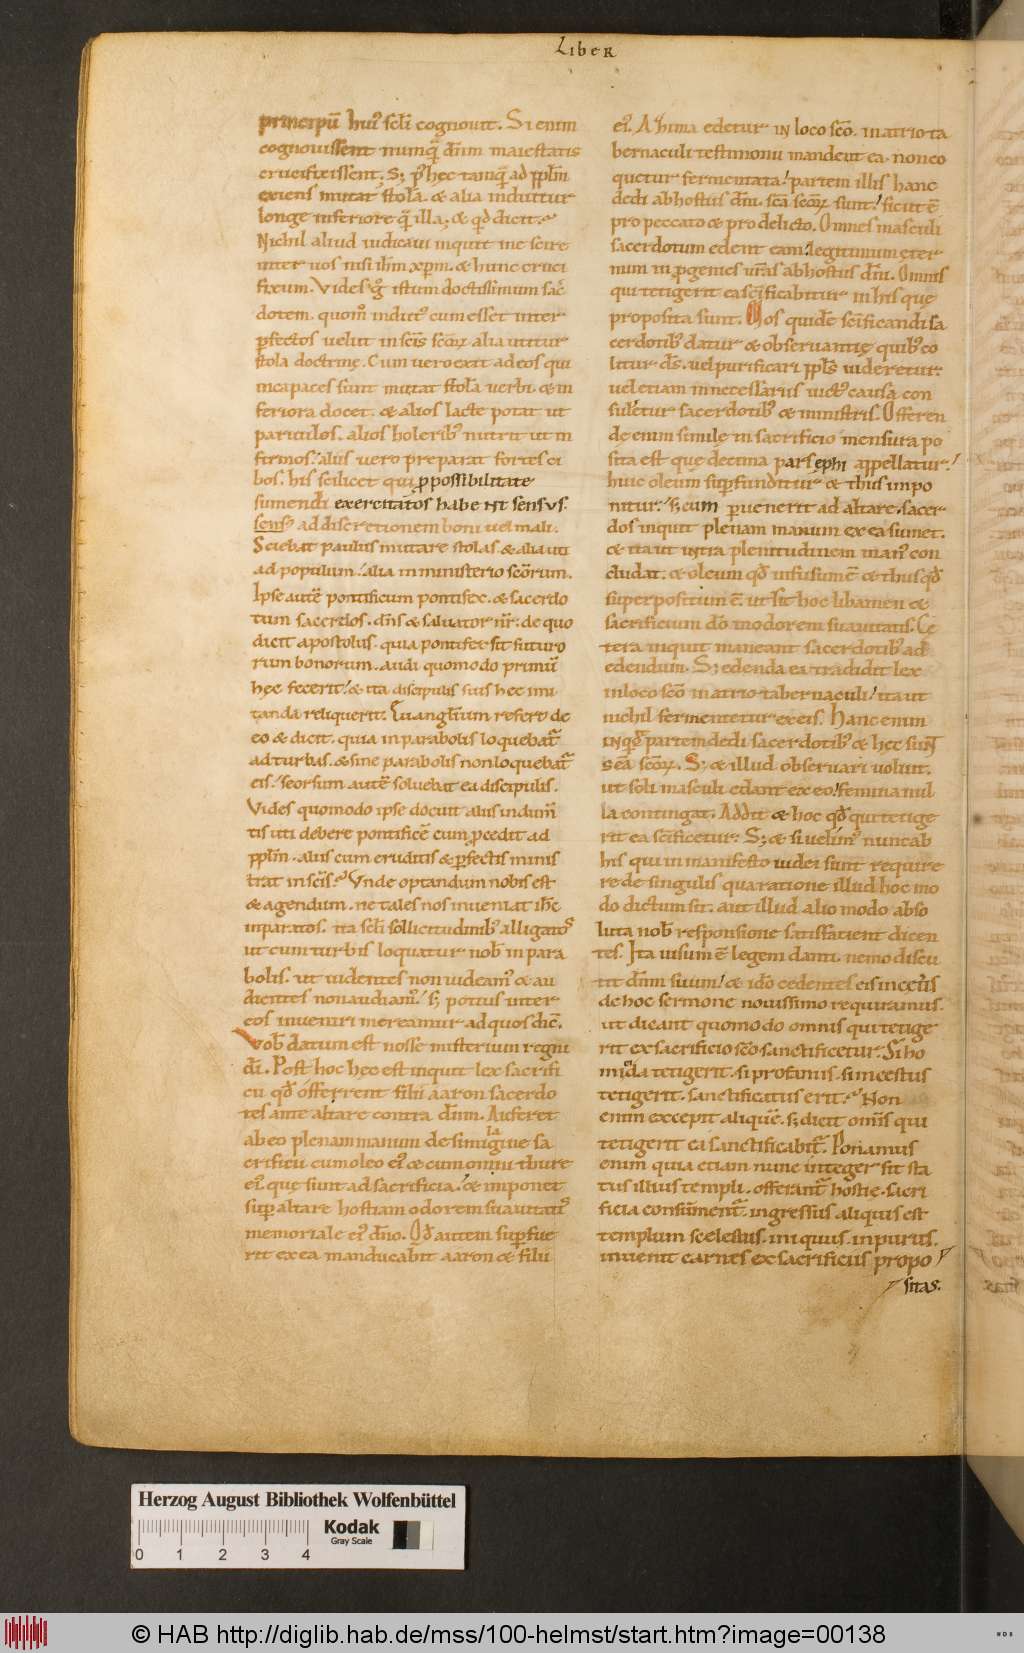 Liber
principũ hui' scłi cognovit. Si enim
cognouissent numquã dñm maiestatis
crucifixissent. S; p' hec tamquã ad ppłm
exiens mutat stolã. & alia induitur
longe inferiore quã illa; & qd dicit.
Nichil aliud iudicaui inquit me scire
inter uos nisi ihm xpm. & hunc cruci
fixum. Vides g° istum doctissimum sac̃
dotem. quom̃ indut' cum esset inter
pfectos velut in scis scõꝝ alia utitur
stola doctrinę. Cum vero exit ad eos qui
incapaces sunt mutat stolã verbi. & in
feriora docet. & alios lacte potat ut
paruulos. alios holerib' nutrit ut in
firmos. aliis vero preparat fortes ci
bos. his scilicet qui p possibilitate
sumendi exercitatos habent sensus.
sens' ad discretionem boni uel mali.
Sciebat paulus mutare stolas. & alia uti
ad populum. alia in ministerio scõrum.
Ipse autẽ pontificum pontifex. & sacerdo
tum sacerdos. dñs & saluator nr̃. de quo
dicit apostolus. quia pontifex sit futuro
rum bonorum. audi quomodo primũ
hęc fecerit. & ita discipulis suis hec imi
tanda reliquerit. Euangłium refert de
eo & dicit. quia in parabolis loquebat̃
ad turbas. & sine parabolis non loquebat̃
eis. seorsum autẽ soluebat ea discipulis.
Vides quomodo ipse docuit aliis indum̃
tis uti debere pontificẽ cum pcedit ad
ppłm. aliis cum eruditis & pfectis minis
trat in scis. Vnde optandum nobis est
& agendum. ne tales nos inueniat ihc̃
inparatos. ita scłi sollicitudinib' alligatos
ut cum turbis loquatur nob̃ in para
bolis. ut uidentes non uideam' & au
dientes non audiam'. s; potius inter
eos inueniri mereamur ad quos dic̃.
Vob̃ datum est nosse misterium regni
dĩ. Post hoc hęc est inquit lex sacrifi
cii qd offerrent filii aaron sacerdo
tes ante altare contra dñm. Auferet
ab eo plenam manum de similagine sa
crificii cum oleo ei' & cum omni thure
ei' quę sunt ad sacrificia. & imponet
sup altare hostiam odorem suauitatis
memoriale ei' dño. Qd autem supfue
rit ex ea manducabit aaron & filii
ei'. Azima edetur in loco scõ. in atrio ta
bernaculi testimonii mandent ea. non co
quetur fermentata. partem illis hanc
dedi ab hostiis dñi. scã scõꝝ sunt. sicut ẽ
pro peccato & pro delicto. Omnes masculi
sacerdotum edent eam. legitimum ęter
num in pgenies urãs ab hostiis dñi. Omnis
qui tetigerit ea scificabitur in his quę
proposita sunt. Mos quidẽ scificandi sa
cerdotib' datur & obseruantię quib' co
litur ds̃. vel purificari ppłs uideretur.
uel etiam in necessariis uict' causa con
suletur sacerdotib' & ministris. Offeren
de enim simile in sacrificio mensura po
sita est quę decima pars ephi appellatur.
huic oleum supfunditur & thus impo
nitur. s; cum puenerit ad altare. sacer
dos inquit plenam manum ex ea sumet.
& ita ut intra plenitudinem man' con
cludat. & oleum qd infusum ẽ & thus qd
superpositum ẽ. ut sit hoc libamen &
sacrificium dõ in odorem suauitatis. Ce
tera inquit maneant sacerdotib' ad
edendum. S; edenda ea tradidit lex
in loco scõ in atrio tabernaculi. ita ut
nichil fermentetur ex eis. Hanc enim
inqd partem dedi sacerdotib' & hec sunt
scã scõꝝ. S; & illud obseruari voluit.
ut soli masculi edant ex eo. femina nul
la contingat. Addit & hoc qd qui tetige
rit ea scificetur. S; & si uelim' nunc ab
his qui in manifesto uidei sunt require
re de singulis qua ratione illud hoc mo
do dictum sit. aut illud alio modo abso
luta nob̃ responsione satisfatient dicen
tes. Ita uisum ẽ legem danti. nemo discu
tit dñm suum. & idõ cedentes eis in cet̃is
de hoc sermone nouissimo requiramus.
ut dicant quomodo omnis qui tetige
rit ex sacrificio scõ sanctificetur. Si ho
micida tetigerit. si profanus. si incestus
tetigerit. sanctificatus erit. Non
enim excepit aliquẽ. s; dicit om̃s qui
tetigerit ea sanctificabit̃. Ponamus
enim quia etiam nunc integer sit sta
tus illius templi. offerant̃ hostie. sacri
ficia consũment̃. ingressus aliquis est
templum scelestus. iniquus. inpurus.
inuenit carnes ex sacrificiis propo
sitas.
Herzog August Bibliothek Wolfenbüttel
Kodak
Gray Scale
0 1 2 3 4
© HAB http://diglib.hab.de/mss/100-helmst/start.htm?image=00138